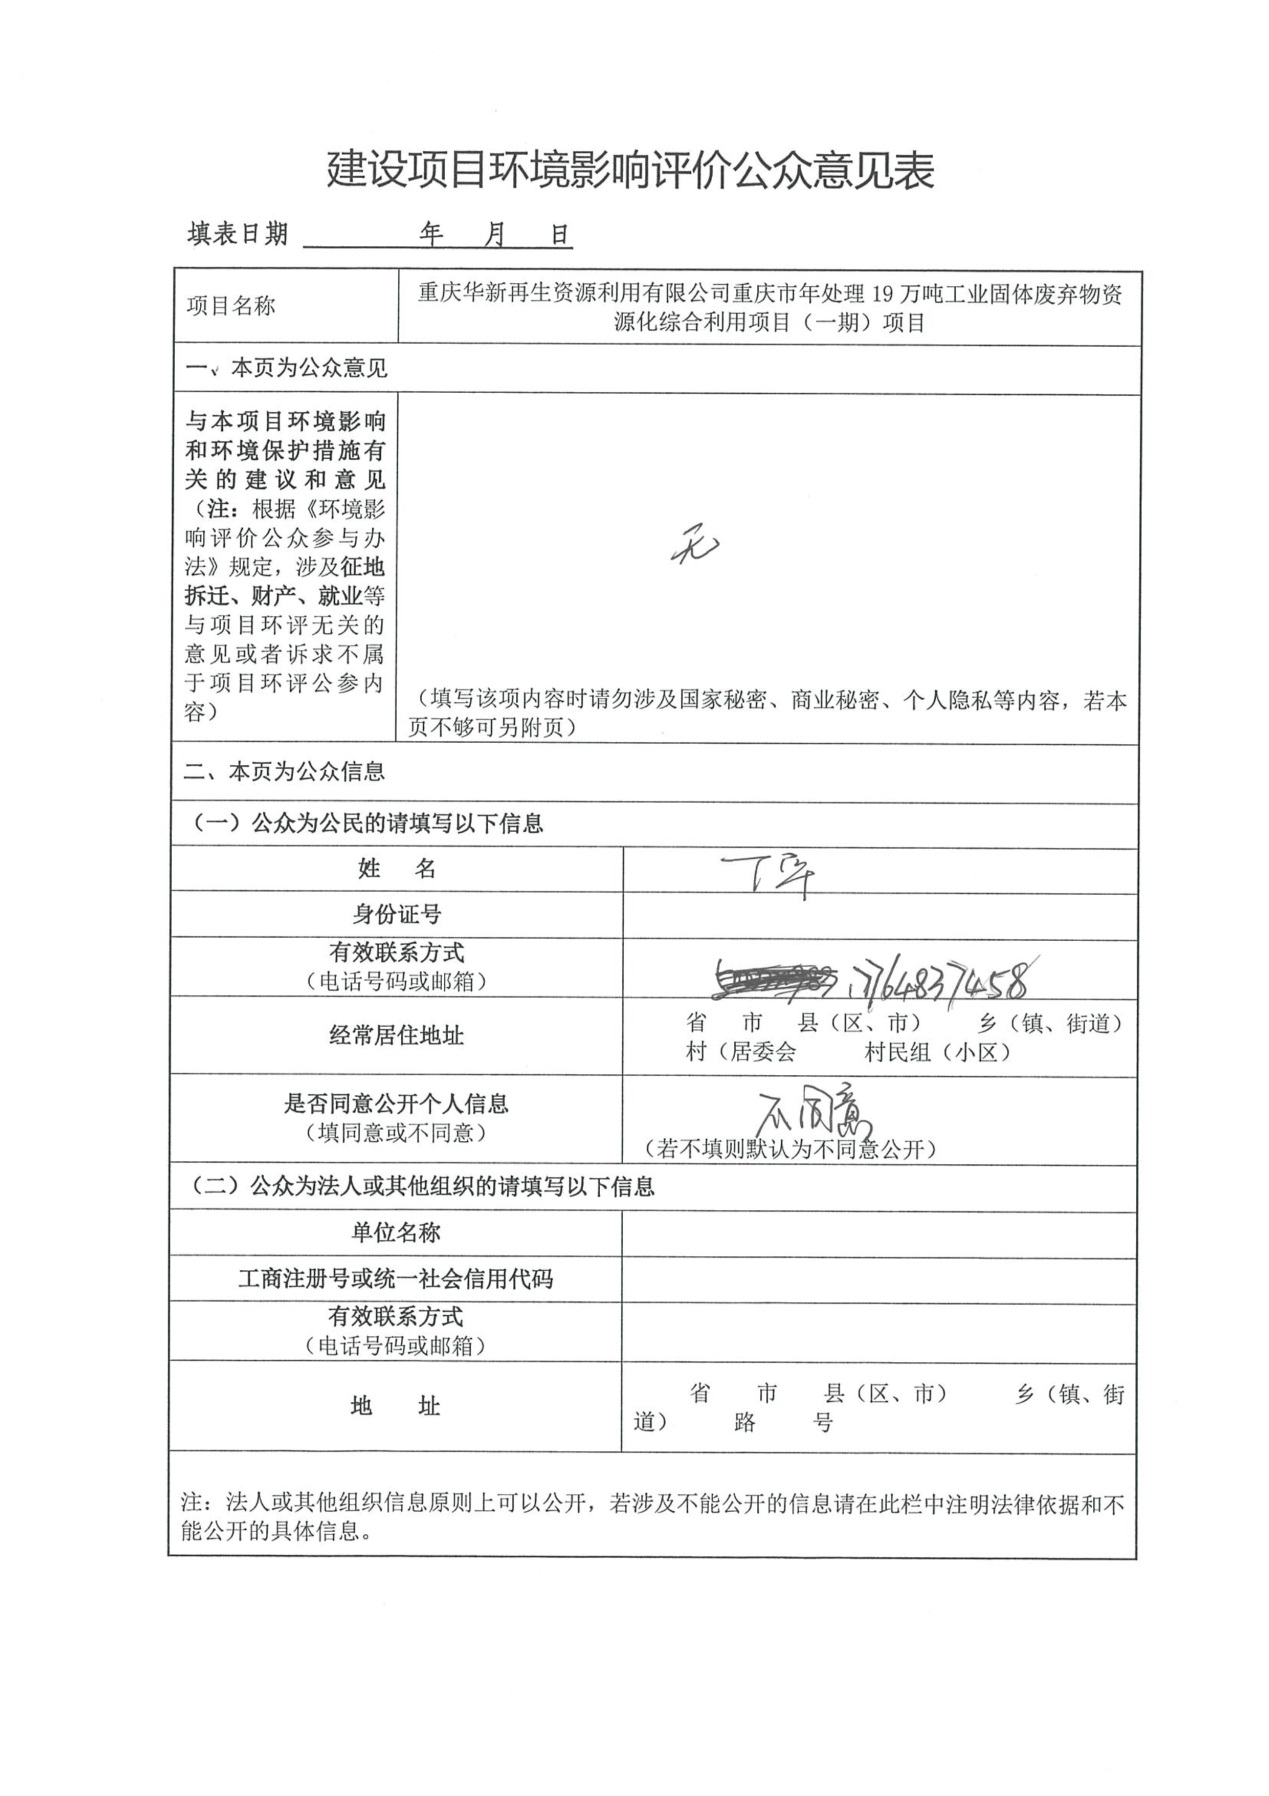 建设项目环境影响评价公众意见表
填表日期 年 月 日
项目名称
重庆华新再生资源利用有限公司重庆市年处理 19 万吨工业固体废弃物资
源化综合利用项目（一期）项目
一、本页为公众意见
与本项目环境影响
和环境保护措施有
关的建议和意见
（注：根据《环境影
响评价公众参与办
法》规定，涉及征地
拆迁、财产、就业等
与项目环评无关的
意见或者诉求不属
于项目环评公参内
容）
无
（填写该项内容时请勿涉及国家秘密、商业秘密、个人隐私等内容，若本
页不够可另附页）
二、本页为公众信息
（一）公众为公民的请填写以下信息
姓 名
丁军
身份证号
有效联系方式
（电话号码或邮箱）
17764837458
经常居住地址
省 市 县（区、市） 乡（镇、街道）
村（居委会 村民组（小区）
是否同意公开个人信息
（填同意或不同意）
不同意
（若不填则默认为不同意公开）
（二）公众为法人或其他组织的请填写以下信息
单位名称
工商注册号或统一社会信用代码
有效联系方式
（电话号码或邮箱）
地 址
省 市 县（区、市） 乡（镇、街
道） 路 号
注：法人或其他组织信息原则上可以公开，若涉及不能公开的信息请在此栏中注明法律依据和不
能公开的具体信息。